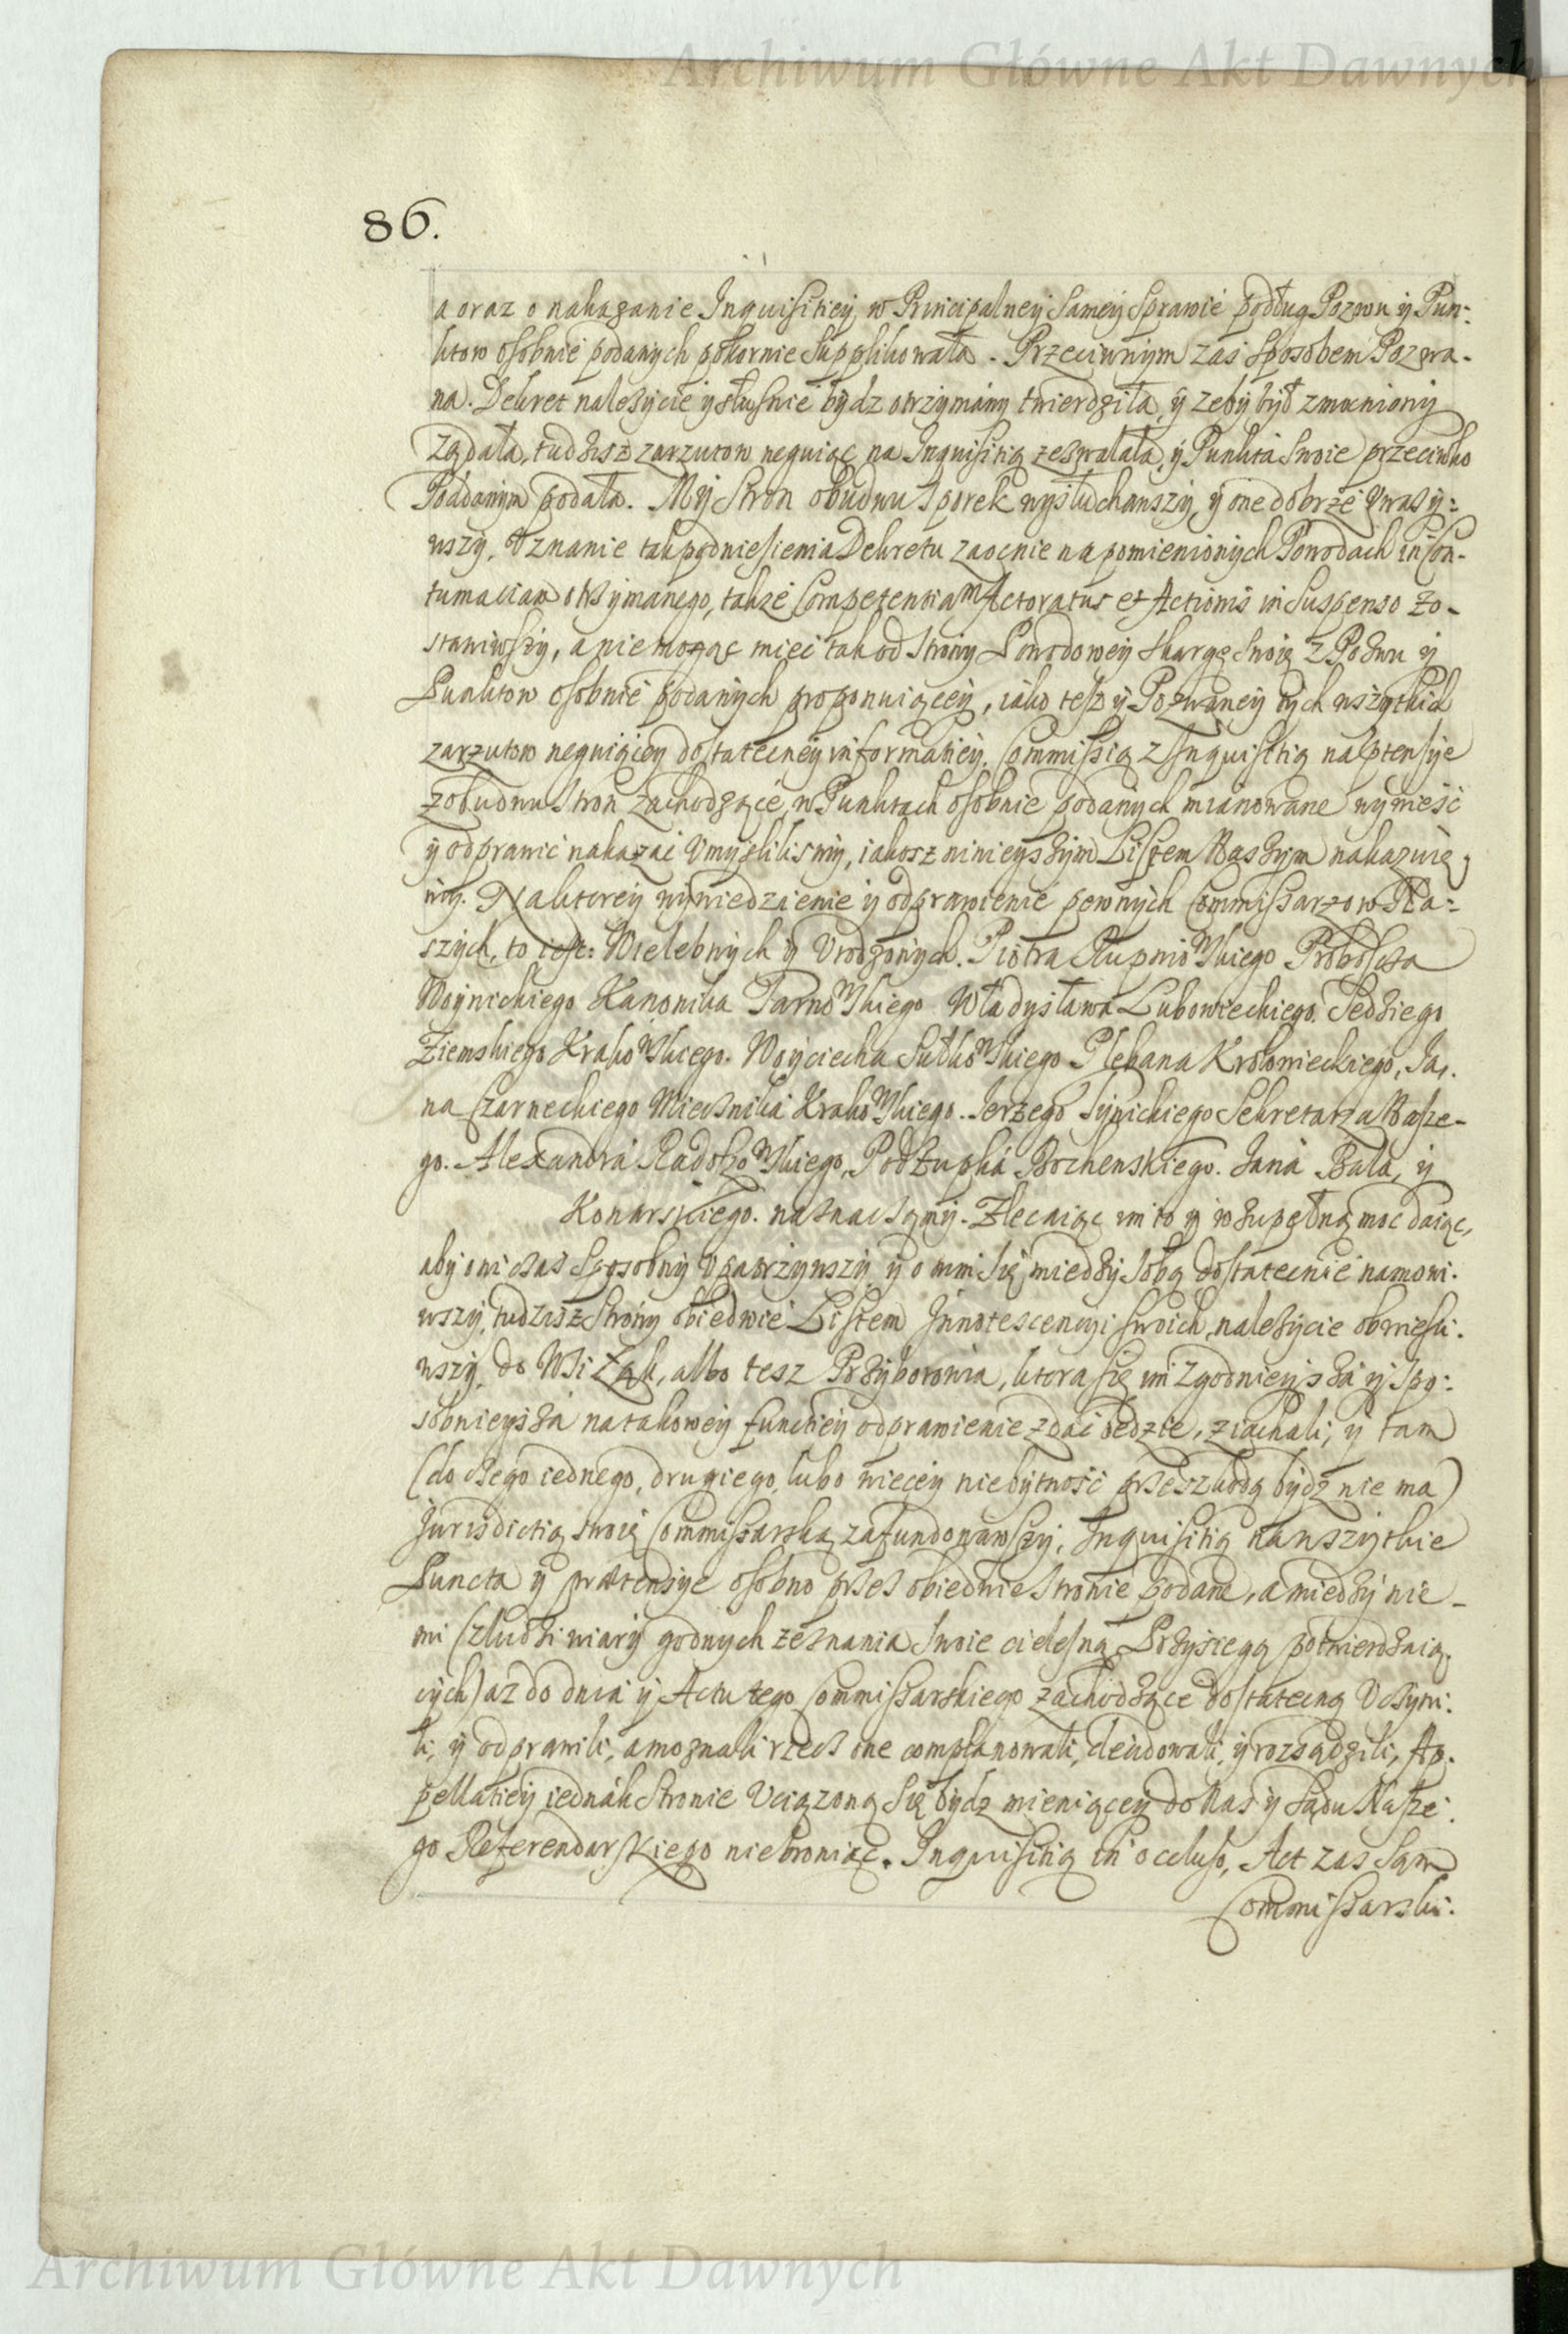 Archiwum Główne Akt Dawnych
86.
a oraz o nakazanie Inquisitiey w Principalney Samey Sprawie podług Pozwu y Pun-
ktow osobnie podanych pokornie Supplikowała. Przeciwnym zaś Sposobem Pozwa-
na. Dekret należycie y słusznie bydz otrzymány twierdziła, y żeby był zmocniony
Ządała, tudziesz zarzutow neguiąc na Inquisitią zezwalała, y Punkta Swoie przeciwko
Poddanym podała. My Stron obudwu Sporek wysłuchawszy, y one dobrze Uważy-
wszy, Uznanie tak podniesienia Dekretu zaocnie na pomienionych Powodach in Con-
tumaciam otrzymanego, także Competentiam Actoratus et Actionis in Suspenso Zo-
stawiwszy, a nie mogąc mieć tak od Strony Powodowey skargę Swoię z Pozwu y
Punktow osobnie podanych proponuiącey, iako tesz y Pozwaney tych wszytkich
zarzutow neguiącey dostateczney informatiey. Commissią z Inquisitią na ptensye
z obudwu Stron zachodzące, w Punktach osobnie podanych mianowane wywieść
y odprawić nakazać Umyslilismy, iakosz ninieyszym Listem Naszym nakazuię
my. Na ktorey wywiedzienie y odprawienie pewnych Commissarzow Na-
szych, to iest: Wielebnych y Urodzonych. Piotra Słupowskiego Proboscza
Woynickiego Kanonika Tarnowskiego Władysława Lubowieckiego Sędziego
Ziemskiego Krakowskiego. Woyciecha Sułkowskiego Plebana Krolowieckiego, Ja-
na Czarneckiego Miecznika Krakowskiego. Jerzego Synickiego Sekretarza Nasze-
go. Alexandra Radoszowskiego, Podżupka Bochenskiego. Jana Bala, y
Konarskiego. naznaczamy. Zlecaiąc im to y w zupełną moc daiąc,
aby oni czas Sposobny Upatrzywszy y o nim Się miedzy Sobą dostatecnie namowi-
wszy, tudziesz Strony obiedwie Listem Innotescencyi Swoich, należycie obwiesci-
wszy, do Wsi Łąk, albo tesz Przyborowia, ktora się im Zgodnieysza y Spo-
sobnieysza na takowey functiey odprawienie zdać będzie, ziachali, y tam
(do czego iednego, drugiego, lubo wiecey niebytność przeszkodą bydz nie ma)
Jurisdictią Swoię Commissarską zafundowawszy, Inquisitią na wszytkie
Puncta y prætensye osobno przez obiedwie Stronie podane, a miedzy nie-
mi (z ludzi wiary godnych zeznania Swoie cielesną Przysięgą potwierdzaią-
cych) az do dnia y Actu tego Commissarskiego zachodzące dostatecną Uczyni-
li, y odprawili, a mozna li rzecz one complanowali, decidowali, y rozsądzili, Ap-
pellatiey iednak Stronie Uciązoną Się bydz mieniącey do Nas y Sądu Nasze-
go Referendarskiego nie broniąc. Inquisitią in occluso, Act zas Sąm
Commissarski.
Archiwum Główne Akt Dawnych